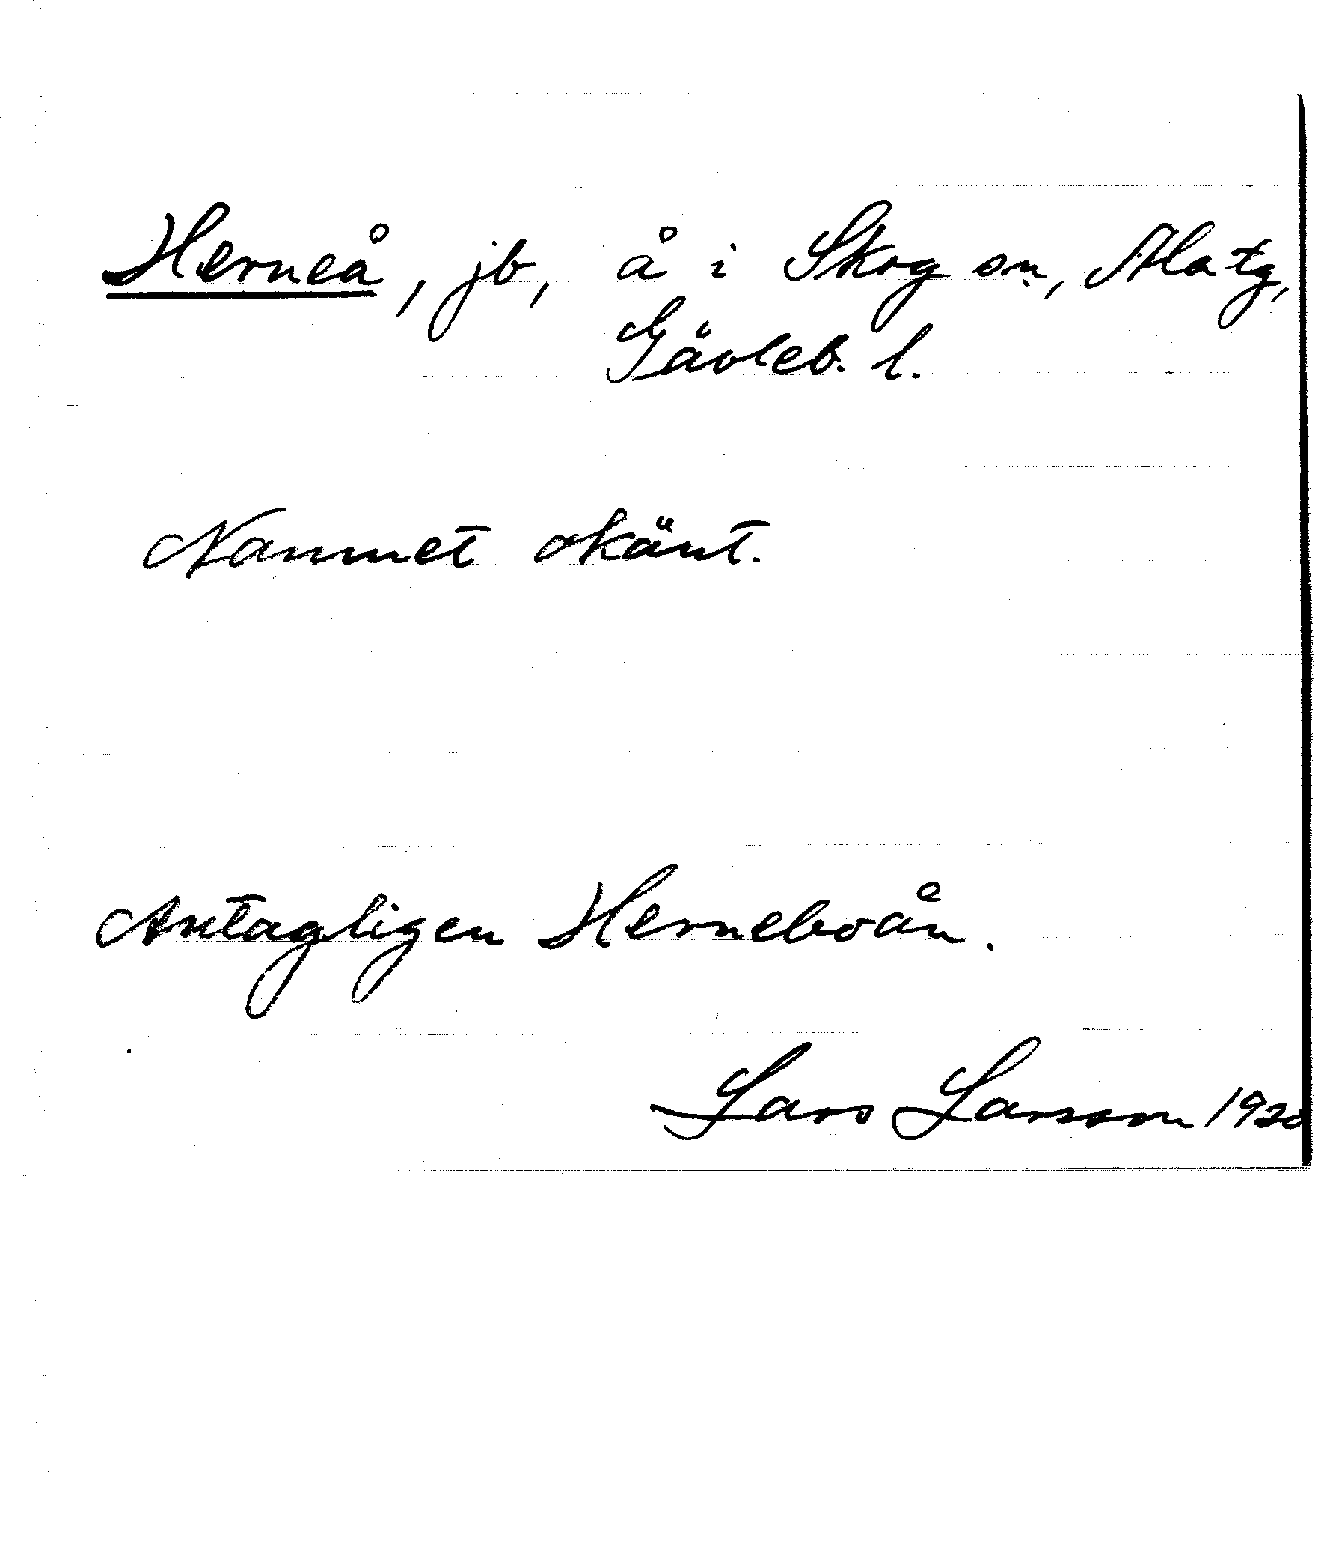 Herneå, jb, å i Skog sn, Ala tg,
Gävleb. l.
Namnet okänt.
AntagligenHerneboån.
Lars Larsson 1920